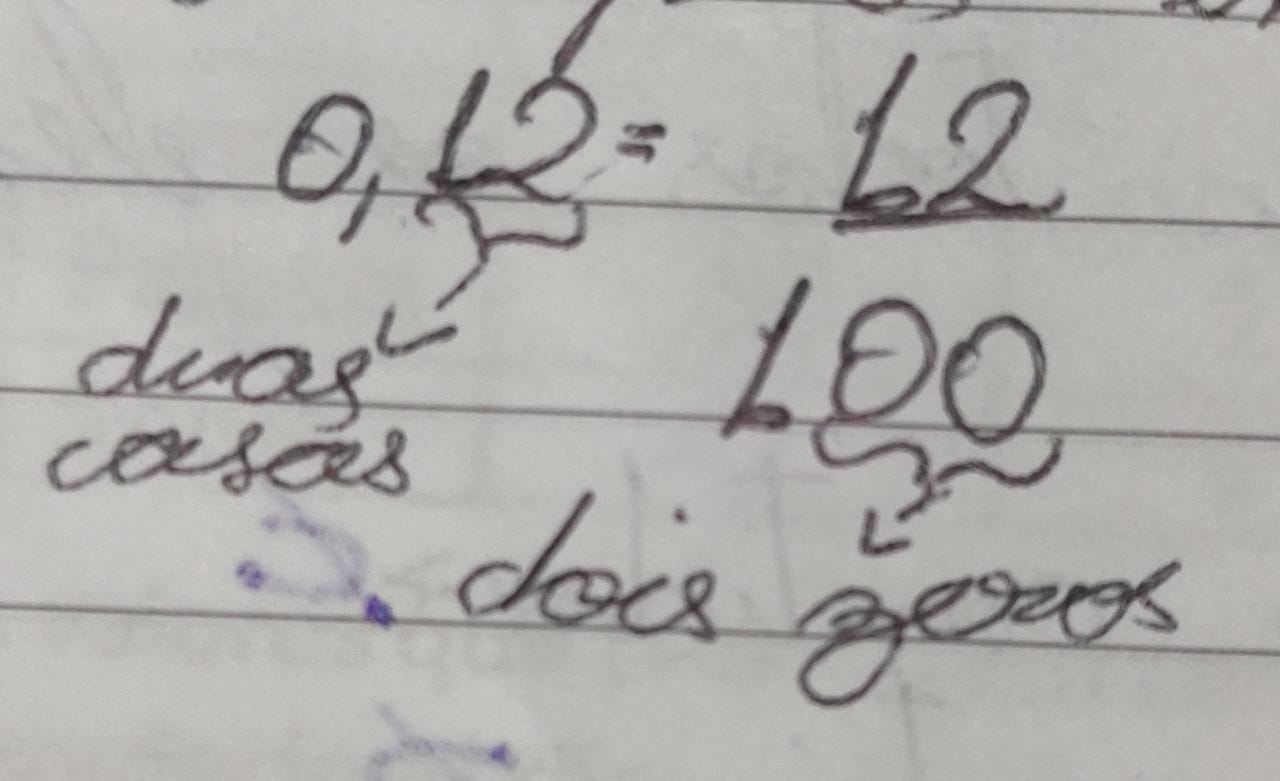 0,12 = 12
100
duas
casas
dois zeros